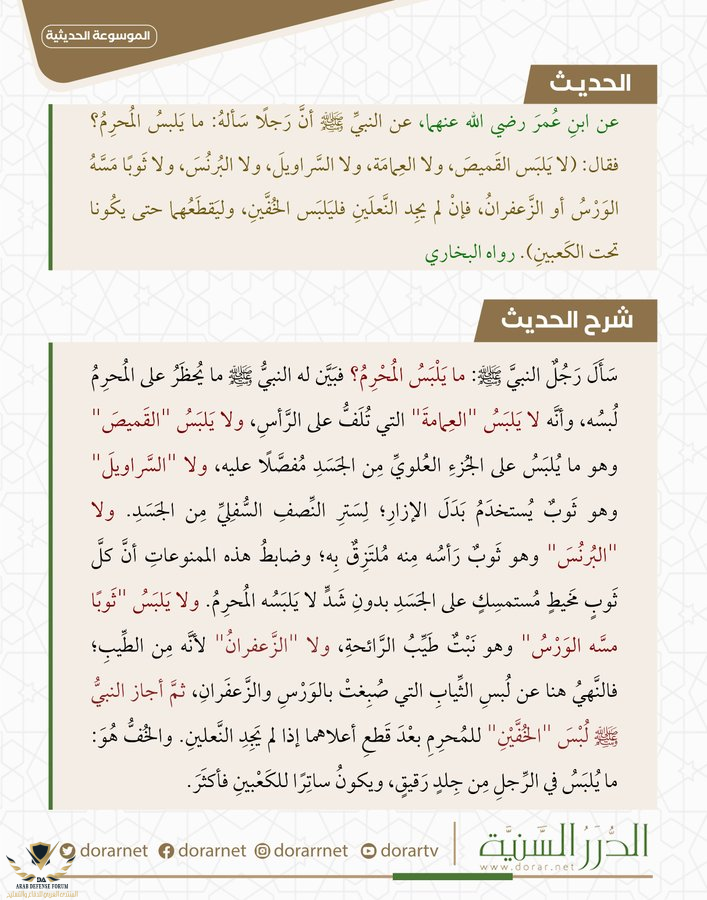 الموسوعة الحديثية
الحديث
عن ابنِ عُمرَ رضي الله عنهما، عن النبيِّ ﷺ أنَّ رَجلًا سَألهُ: ما يَلبسُ المُحرِمُ؟
فقال: (لا يَلبَس القَميصَ، ولا العِمامَة، ولا السَّراويلَ، ولا البُرنُسَ، ولا ثَوبًا مَسَّهُ
الوَرْسُ أو الزَّعفرانُ، فإنْ لم يجِد النَّعلَينِ فليَلبَس الخُفَّينِ، وليَقطَعْهما حتى يكُونا
تحت الكَعبينِ). رواه البخاري
شرح الحديث
سَأَلَ رَجُلٌ النبيَّ ﷺ: ما يَلْبَسُ المُحْرِمُ؟ فبَيَّن له النبيُّ ﷺ ما يُحظَرُ على المُحرِمُ
لُبسُه، وأنَّه لا يَلبَسُ "العِمامةَ" التي تُلَفُّ على الرَّأسِ، ولا يَلبَسُ "القَميصَ"
وهو ما يُلبَسُ على الجُزءِ العُلويِّ مِن الجَسَدِ مُفصَّلًا عليه، ولا "السَّراويلَ"
وهو ثَوبٌ يُستخدَمُ بَدَلَ الإزارِ؛ لِسَترِ النِّصفِ السُّفلِيِّ مِن الجَسَدِ. ولا
"البُرنُسَ" وهو ثَوبٌ رَأسُه مِنه مُلتَزِقٌ بِه؛ وضابطُ هذه الممنوعاتِ أنَّ كلَّ
ثَوبٍ مَخيطٍ مُستمسِكٍ على الجَسَدِ بدونِ شَدٍّ لا يَلبَسُه المُحرِمُ. ولا يَلبَسُ "ثَوبًا
مسَّه الوَرْسُ" وهو نَبْتٌ طَيِّبُ الرَّائحةِ، ولا "الزَّعفرانُ" لأنَّه مِن الطِّيبِ؛
فالنَّهيُ هنا عن لُبسِ الثِّيابِ التي صُبِغتْ بالوَرْسِ والزَّعفَرانِ، ثمَّ أجاز النبيُّ
ﷺ لُبْسَ "الخُفَّيْنِ" للمُحرِمِ بعْدَ قَطعِ أعلاهما إذا لم يَجِدِ النَّعلينِ. والخُفُّ هُوَ:
ما يُلبَسُ في الرِّجلِ مِن جِلدٍ رَقيقٍ، ويكونُ ساتِرًا للكَعْبينِ فأكثَرَ.
الدُّرَرُ السَّنِيَّة
www.dorar.net
dorarnet dorarnet dorarrnet dorartv
DA
ARAB DEFENSE FORUM
المنتدى العربي للدفاع والتسليح